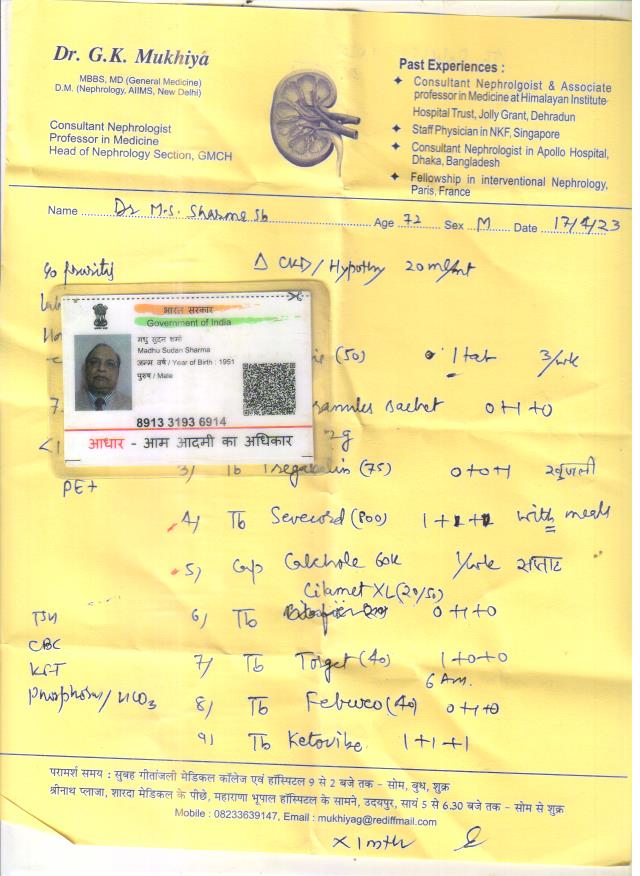 Dr. G.K. Mukhiya
MBBS, MD (General Medicine)
D.M. (Nephrology, AIIMS, New Delhi)
Consultant Nephrologist
Professor in Medicine
Head of Nephrology Section, GMCH
Past Experiences :
Consultant Nephrolgoist & Associate
professor in Medicine at Himalayan Institute
Hospital Trust, Jolly Grant, Dehradun
Staff Physician in NKF, Singapore
Consultant Nephrologist in Apollo Hospital,
Dhaka, Bangladesh
Fellowship in interventional Nephrology,
Paris, France
Name Dr M.S. Sharma Sb Age 72 Sex M Date 17/4/23
Δ CKD / Hypothy 20 ml/mt
भारत सरकार
Government of India
मधु सुदन शर्मा
Madhu Sudan Sharma
जन्म वर्ष / Year of Birth : 1951
पुरुष / Male
8913 3193 6914
आधार - आम आदमी का अधिकार
(50) 1 tab 3/wk
sachet 0+1+0
2g
3) Tb (75) 0+0+1 खुजली
PE+
4) Tb (800) 1+1+1 with meals
5) Cap 60K 1/wk सप्ताह
Cilamet XL (20/50)
6) Tb 0+1+0
TSH
CBC
KFT
7) Tb (40) 1+0+0
6 Am.
/ HCO3
8) Tb (40) 0+1+0
9) Tb Ketovibe 1+1+1
परामर्श समय : सुबह गीतांजली मेडिकल कॉलेज एवं हॉस्पिटल 9 से 2 बजे तक - सोम, बुध, शुक्र
श्रीनाथ प्लाजा, शारदा मेडिकल के पीछे, महाराणा भूपाल हॉस्पिटल के सामने, उदयपुर, सायं 5 से 6.30 बजे तक - सोम से शुक्र
Mobile : 08233639147, Email : mukhiyag@rediffmail.com
x 1 mth